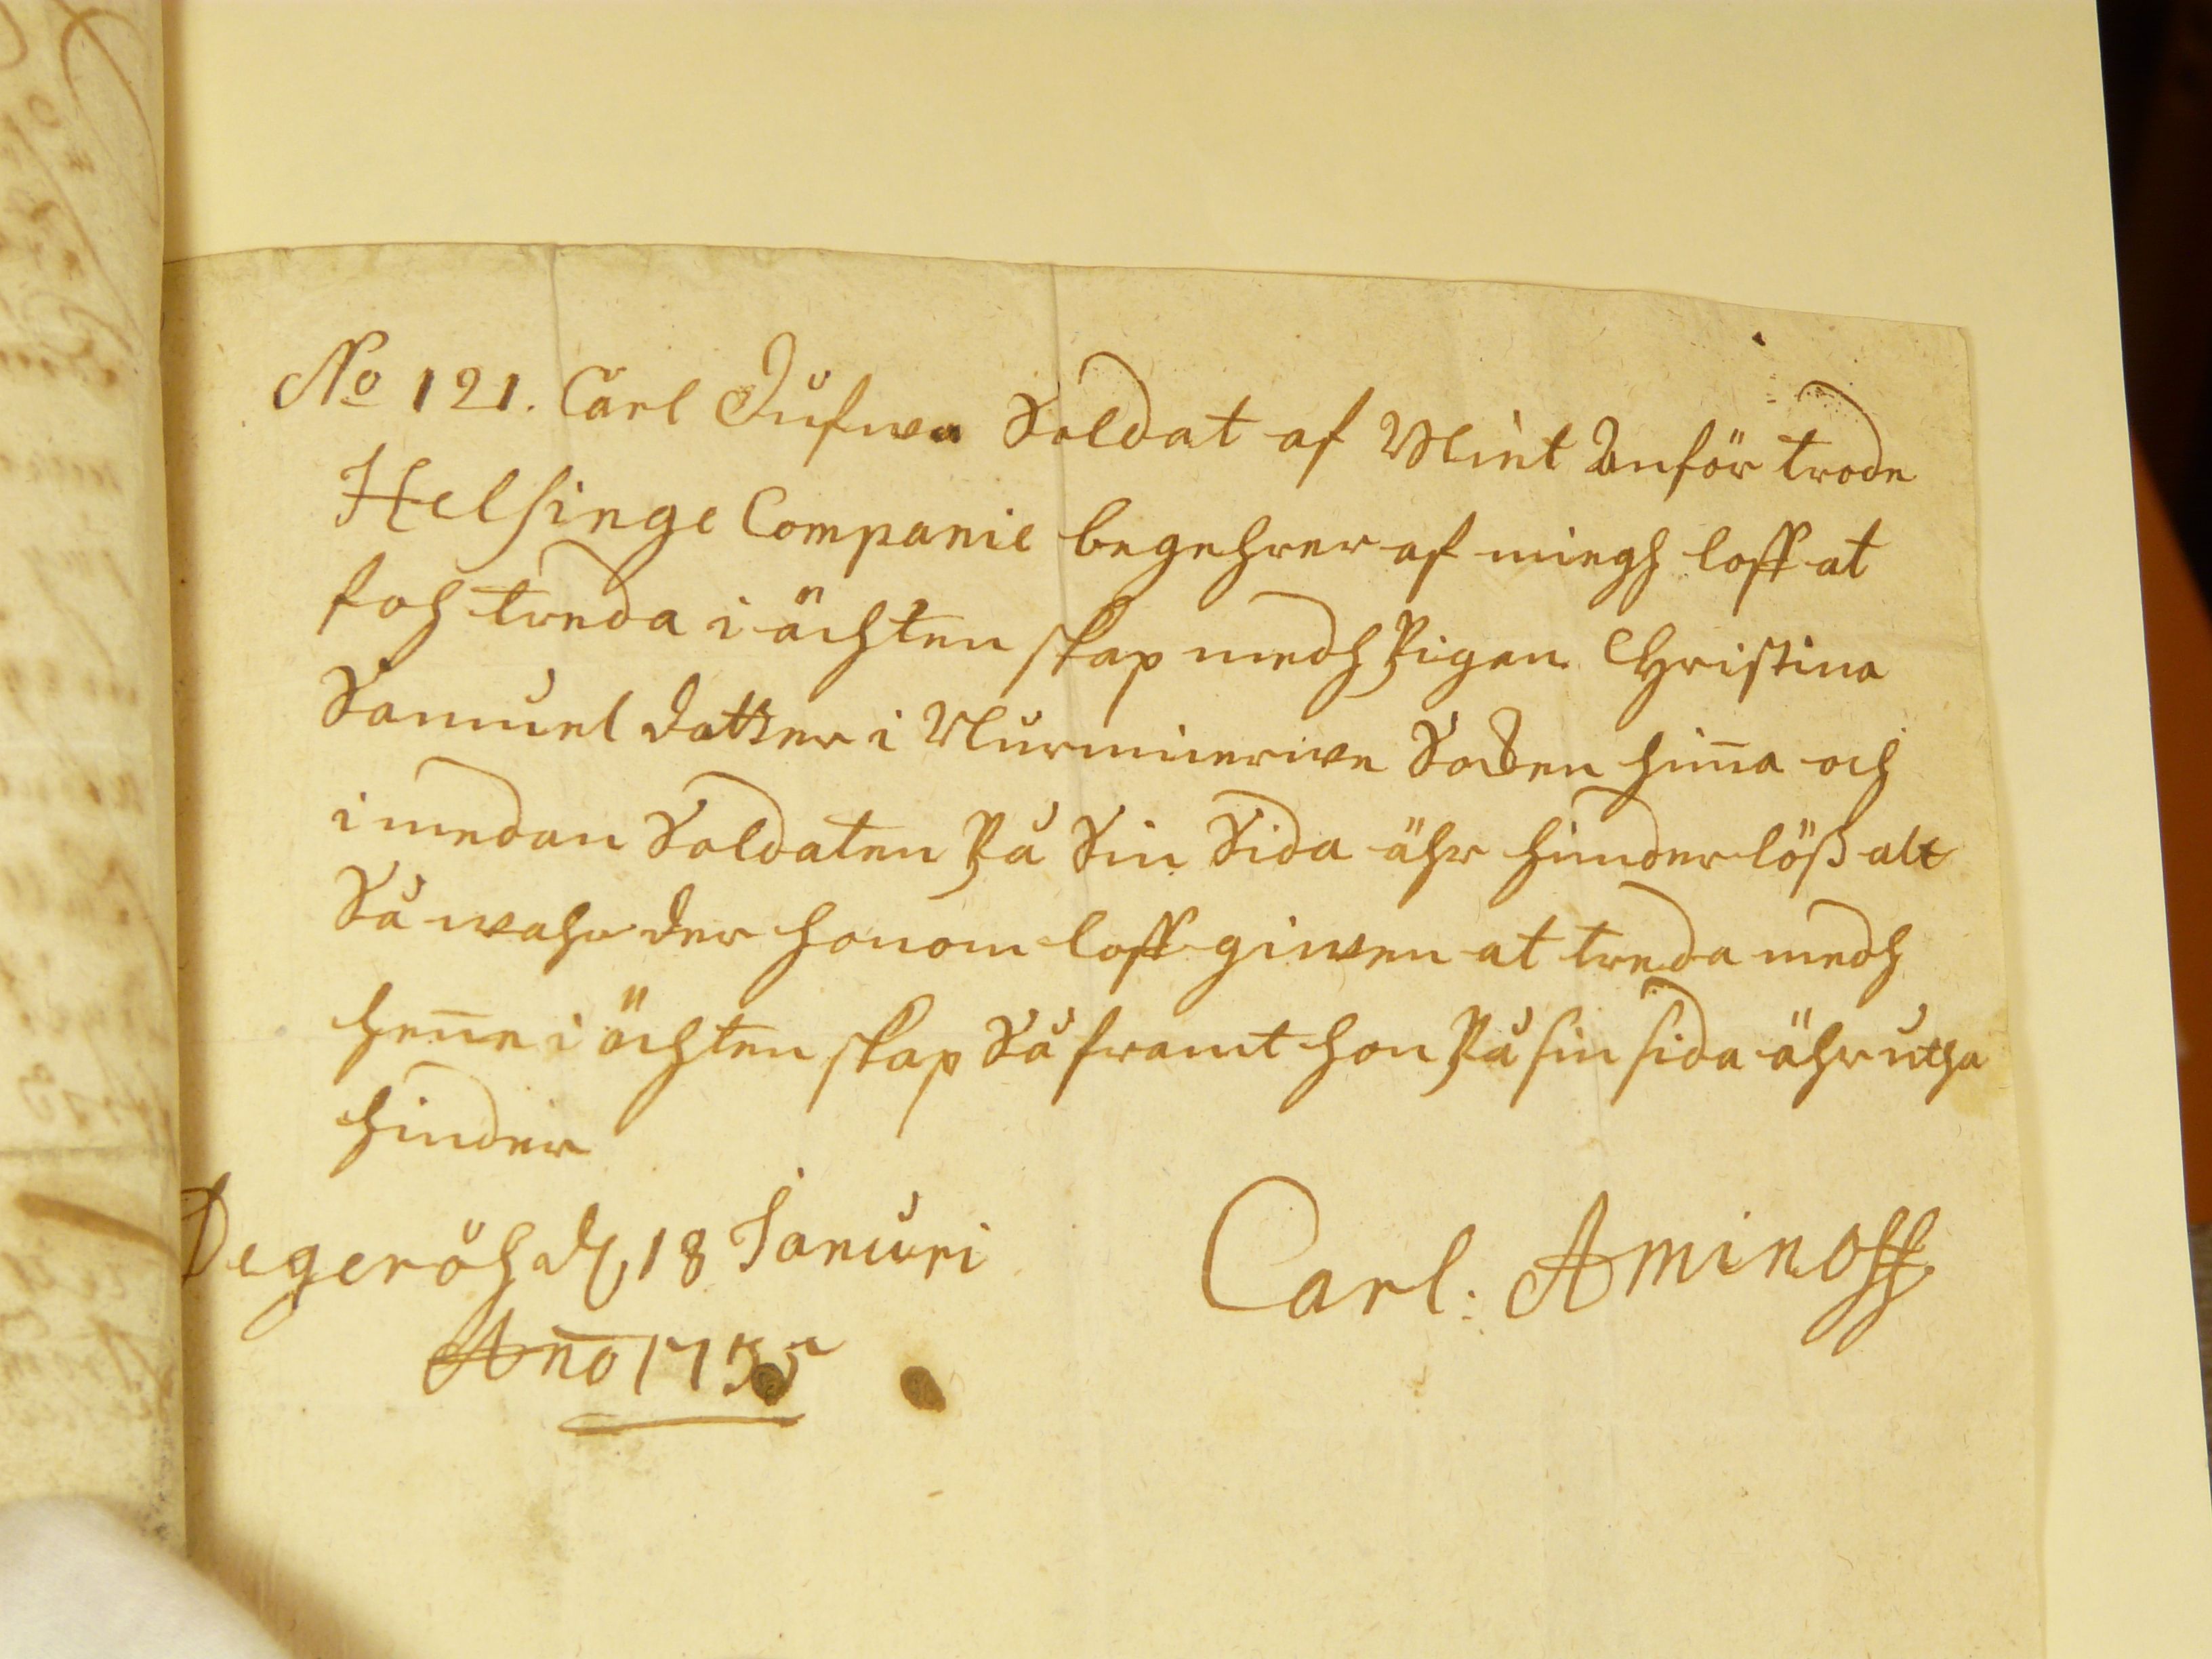 No 121. Carl Dufwa Soldat af Mit Anför trode
Helsinge Companie begehrer af miegh loff at
foh treda i ächten skap medh Pigan Christina
Samuel datter i Nurmierwe Soken hima och
i medan Soldaten På Sin Sida ähr hinder löß alt
Så wahr der honom loff giwen at treda medh
hene i ächten skap Så framt hon På sin sida ähr utha
hinder
Degeröh d. 18 Januri
Ano 1735
Carl. Aminoff